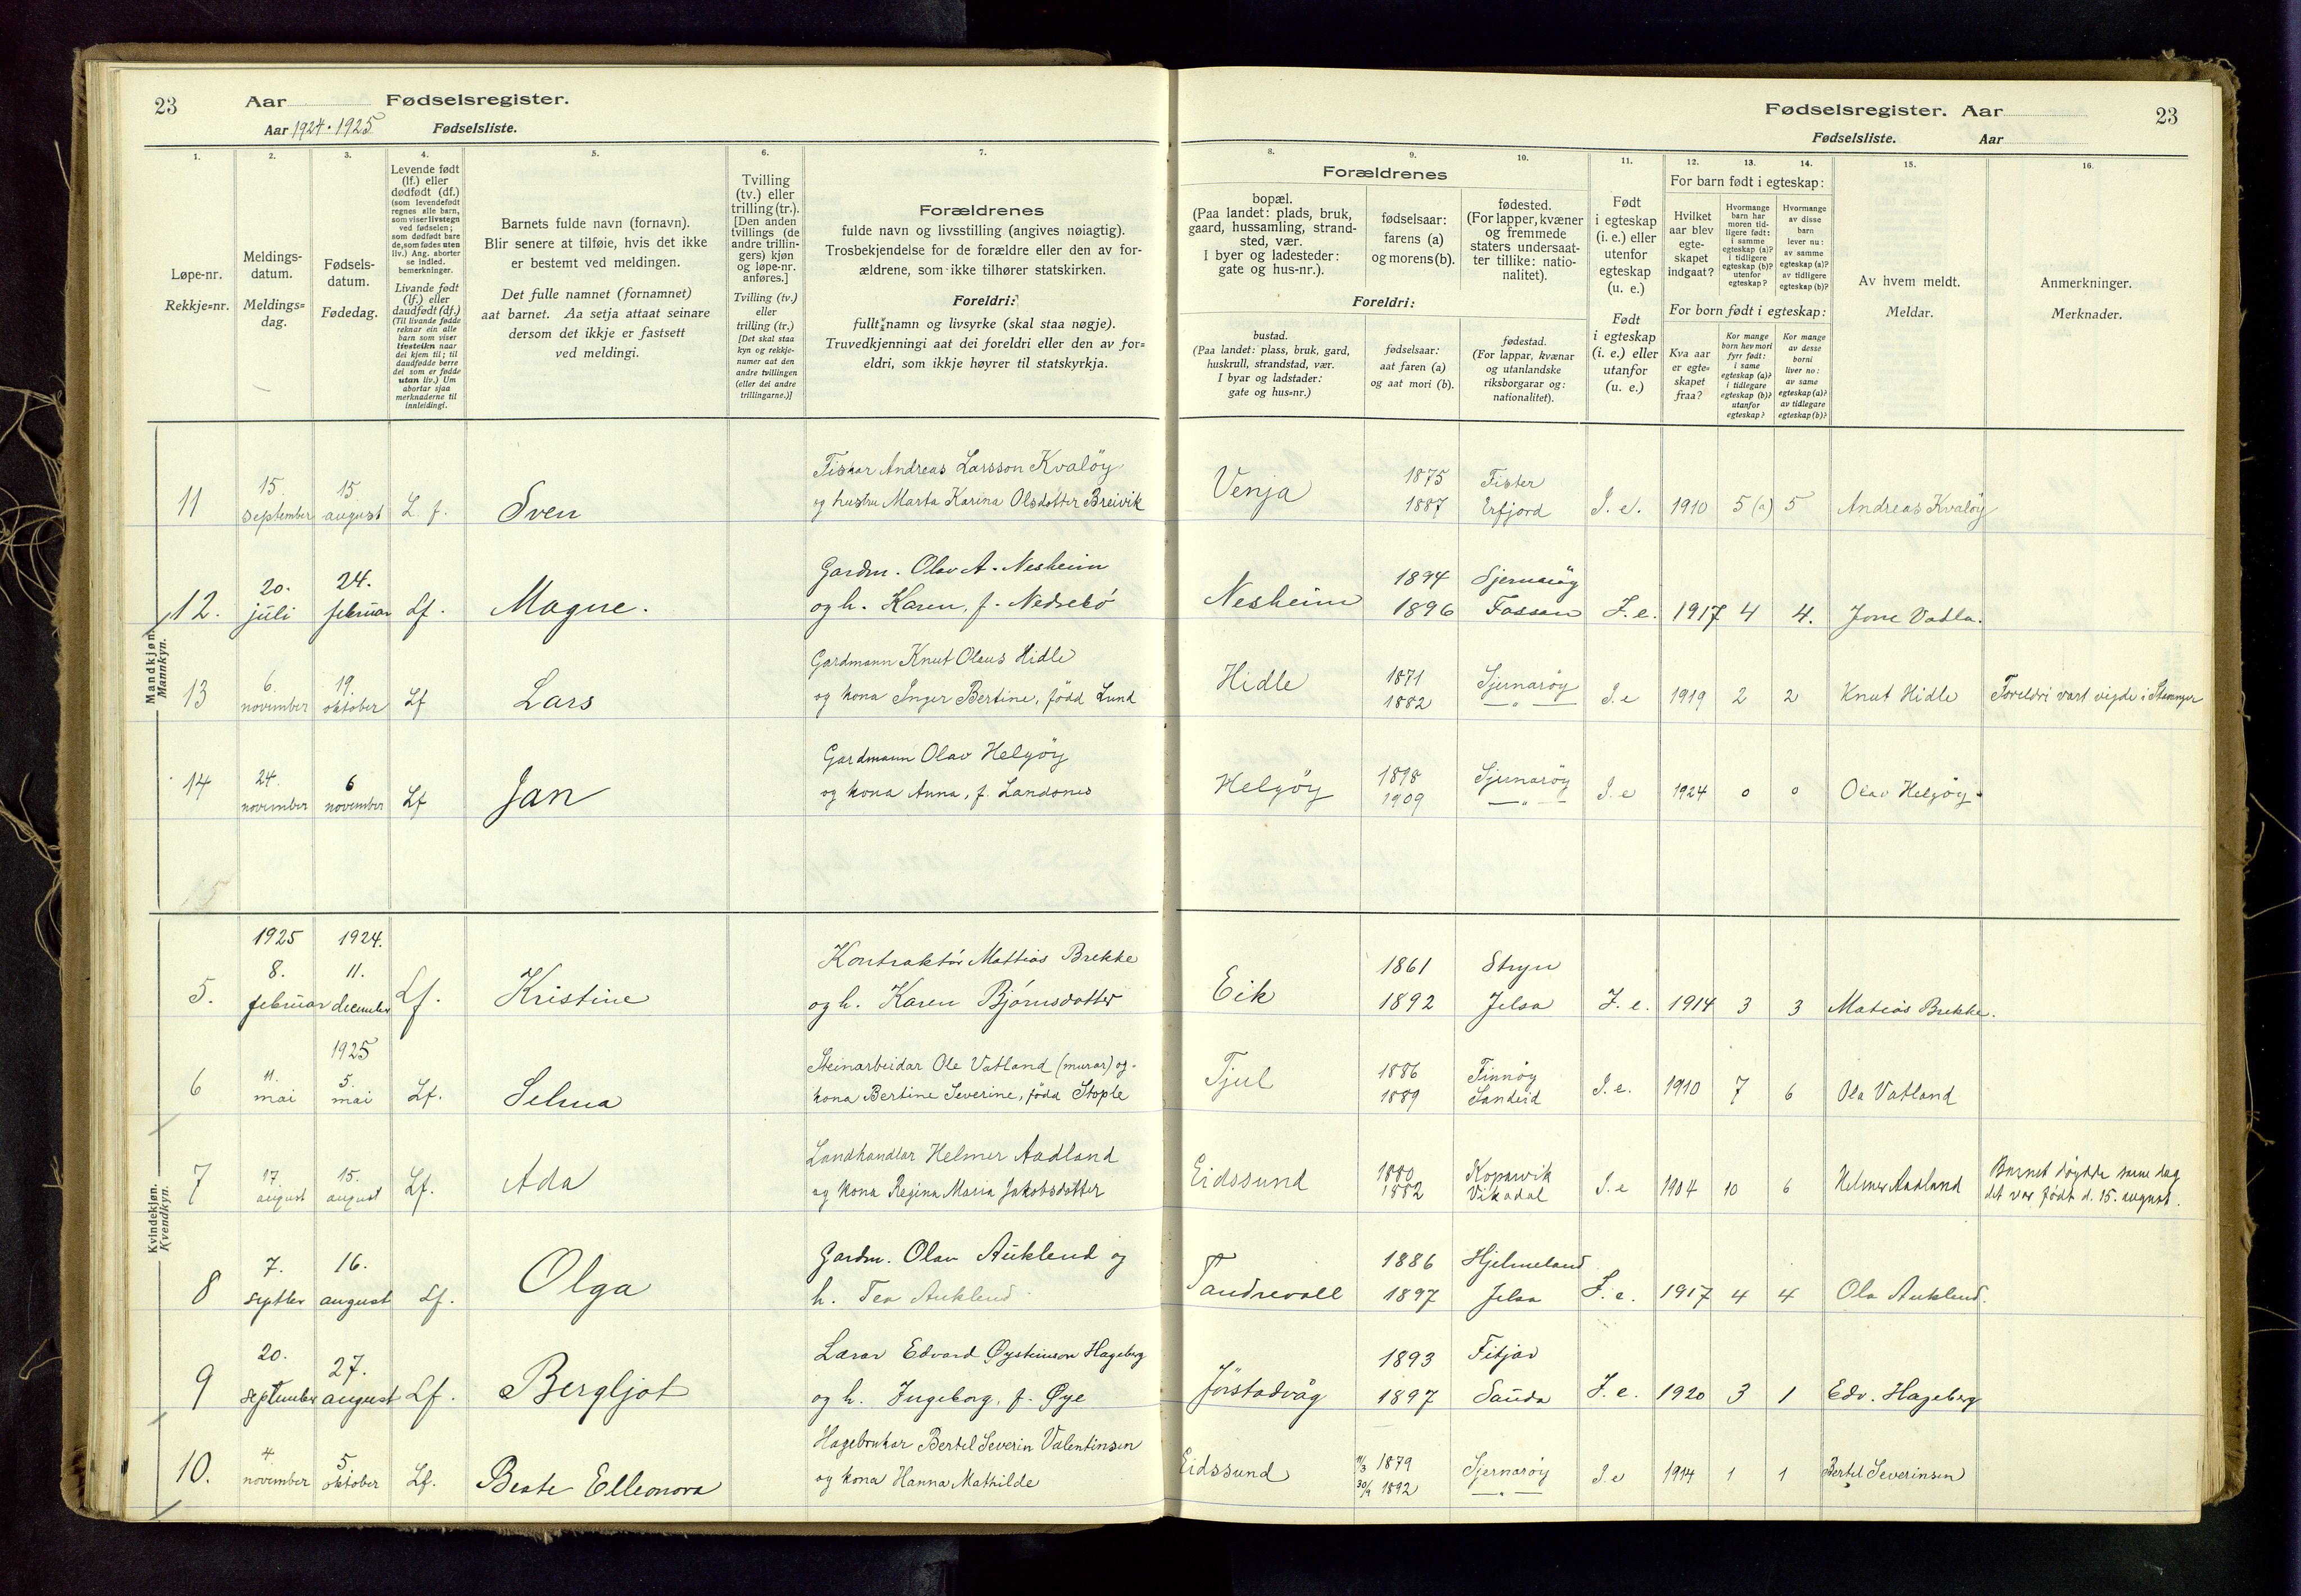 23 Aar Fødselsregister.
Aar 1924-1925 Fødselsliste.
Fødselsregister. Aar 23
Fødselsliste. Aar
1. 2. 3. 4. 5. 6. 7.
Løpe-nr.
Rekkje=nr.
Meldings-
datum.
Meldings=
dag.
Fødsels-
datum.
Fødedag.
Levende født
(lf.) eller
dødfødt (df.)
(som levendefødt
regnes alle barn,
som viser livstegn
ved fødselen;
som dødfødt bare
de, som fødes uten
liv.) Ang. aborter
se indled.
bemerkninger.
Livande født
(lf.) eller
daudfødt (df.)
(Til livande fødde
reknar ein alle
barn som viser
livsteikn naar
dei kjem til; til
daudfødde berre
dei som er fødde
utan liv.) Um
abortar sjaa
merknaderne til
innleidingi.
Barnets fulde navn (fornavn).
Blir senere at tilføie, hvis det ikke
er bestemt ved meldingen.
Det fulle namnet (fornamnet)
aat barnet. Aa setja attaat seinare
dersom det ikkje er fastsett
ved meldingi.
Tvilling
(tv.) eller
trilling (tr.).
[Den anden
tvillings (de
andre trillin-
gers) kjøn
og løpe-nr.
anføres.]
Tvilling (tv.)
eller
trilling (tr.)
[Det skal staa
kyn og rekkje-
numer aat den
andre tvillingen
(eller dei andre
trillingarne.)]
Forældrenes
fulde navn og livsstilling (angives nøiagtig).
Trosbekjendelse for de forældre eller den av for-
ældrene, som ikke tilhører statskirken.
Foreldri:
fullt namn og livsyrke (skal staa nøgje).
Truvedkjenningi aat dei foreldri eller den av for=
eldri, som ikkje høyrer til statskyrkja.
8. 9. 10. 11. 12. 13. 14. 15. 16.
Forældrenes
bopæl.
(Paa landet: plads, bruk,
gaard, hussamling, strand-
sted, vær.
I byer og ladesteder:
gate og hus-nr.).
fødselsaar:
farens (a)
og morens (b).
fødested.
(For lapper, kvæner
og fremmede
staters undersaat-
ter tillike: natio-
nalitet).
Foreldri:
bustad.
(Paa landet: plass, bruk, gard,
huskrull, strandstad, vær.
I byar og ladstader:
gate og hus=nr.)
fødselsaar:
aat faren (a)
og aat mori (b).
fødestad.
(For lappar, kvænar
og utanlandske
riksborgarar og:
nationalitet).
Født
i egteskap
(i. e.) eller
utenfor
egteskap
(u. e.)
Født
i egteskap
(i. e.) eller
utanfor
(u. e.)
For barn født i egteskap:
Hvilket
aar blev
egte-
skapet
indgaat?
Hvormange
barn har
moren tid-
ligere født:
i samme
egteskap (a)?
i tidligere
egteskap (b)?
utenfor
egteskap?
Hvormange
av disse
barn
lever nu:
av samme
egteskap (a)?
av tidligere
egteskap (b)?
For born født i egteskap:
Kva aar
er egte=
skapet
fraa?
Kor mange
born hev mori
fyrr født:
i same
egteskap (a)?
i tidlegare
egteskap (b)?
utanfor
egteskap?
Kor mange
av desse
borni
liver no:
av same
egteskap (a)?
av tidlegare
egteskap (b)?
Av hvem meldt.
Meldar.
Anmerkninger.
Merknader.
Mandkjøn.
Mannkyn.
Fiskar Andreas Larsson Kvaløy 1875 Fister
11 15. september 15 august L. f. Sven og hustru Marta Karina Olsdotter Breivik Venja 1887 Erfjord I. e. 1910 5 (a) 5 Andreas Kvaløy
Gardm. Olav A. Nesheim 1894 Sjernarøy
12. 20. juli 24. februar Lf. Magne. og h. Karen, f. Nedrebö Nesheim 1896 Fossan I. e. 1917 4 4. Jone Vadla.
Gardmann Knut Olaus Hidle 1871 Sjernarøy
13 6. november 19. oktober Lf Lars og kona Inger Bertine, född Lund Hidle 1882 — " — I. e 1919 2 2 Knut Hidle Foreldri vart vigde i Stavanger
Gardmann Olav Helgöy 1898 Sjernaröy
14 24. november 6 november Lf Jan og kona Anna, f. Landsnes Helgöy 1909 — " — I. e 1924 0 0 Olav Helgöy.
15
Kvindekjøn.
Kvendkyn.
1925 1924.
Kontraktör Mattias Brekke 1861 Stryn
5. 8. februar 11. december Lf. Kristine og h. Karen Björnsdotter Eik 1892 Jelsa I. e. 1914 3 3 Matias Brekke.
1925
Steinarbeidar Ole Vatland (murar) og 1886 Finnöy
6 11. mai 5. mai Lf. Selma kona Bertine Severine, född Stople Tjul 1889 Sandeid I. e. 1910 7 6 Ola Vatland
Landhandlar Helmer Aadland 1880 Kopervik Barnet döydde same dag
7 17. august 15. august Lf. Ada og kona Regina Maria Jakobsdotter Eidssund 1882 Vikadal I. e 1904 10 6 Helmer Aadland det var född d. 15. august.
Gardm. Olav Auklend og 1886 Hjelmeland
8 7. septbr 16. august Lf. Olga h. Tea Auklend Tandrevoll 1897 Jelsa I. e. 1917 4 4 Ola Auklend.
Lærar Edvard Øysteinson Hageberg 1893 Fitjar
9 20. september 27. august Lf. Bergljot og h. Ingeborg, f. Øye Jörstadvåg 1897 Sauda I. e. 1920 3 1 Edv. Hageberg
Hagebrukar Bertel Severin Valentinsen 11/3 1879 Sjernaröy
10. 4 november 5 oktober Lf. Beate Elleonora og kona Hanna Mathilde Eidssund 30/9 1892 — " — I. e 1914 1 1 Bertel Severinsen